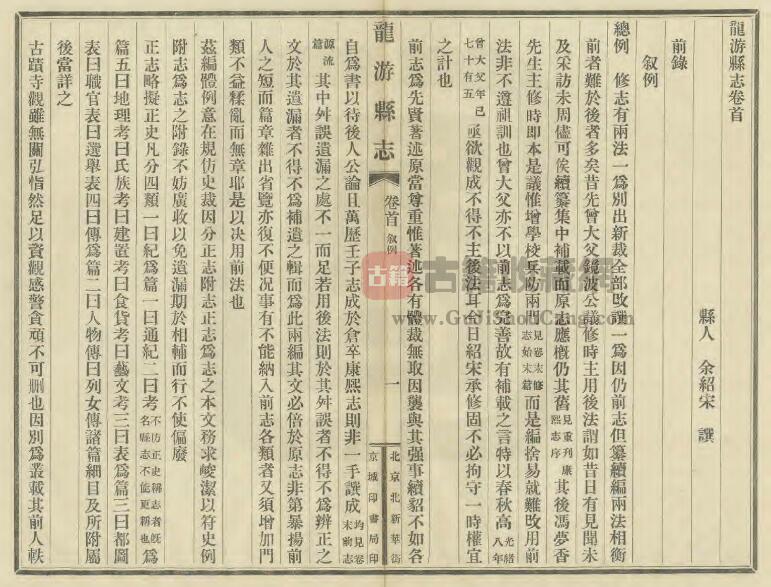 龍游縣志卷首
前錄
縣人 余紹宋 譔
叙例
總例 修志有兩法一爲別出新裁全部改譔一爲因仍前志但纂續編兩法相衡
前者難於後者多矣昔先曾大父鏡波公議修時主用後法謂如昔日有見聞未
及采訪未周儘可俟續纂集中補載而原志應槪仍其舊見重刋康熙志序其後馮夢香
先生主修時即本是議惟增學校兵防兩門見卷末修志始末篇而是編捨易就難改用前
法非不遵祖訓也曾大父亦不以前志爲完善故有補載之言特以春秋高光緒八年
曾大父年已七十有五亟欲觀成不得不主後法耳今日紹宋承修固不必拘守一時權宜
之計也
前志爲先賢著述原當尊重惟著述各有體裁無取因襲與其强事續貂不如各
龍游縣志 卷首 叙例 一 北京北新華街京城印書局印
自爲書以待後人公論且萬歷壬子志成於倉卒康熙志則非一手譔成均見卷末前志
源流篇其中舛誤遺漏之處不一而足若用後法則於其舛誤者不得不爲辨正之
文於其遺漏者不得不爲補遺之輯而爲此兩編其文必倍於原志非第暴揚前
人之短而篇章雜出省覽亦復不便况事有不能納入前志各類者又須增加門
類不益糅亂而無章耶是以决用前法也
茲編體例意在規仿史裁因分正志附志正志爲志之本文務求峻潔以符史例
附志爲志之附錄不妨廣收以免遺漏期於相輔而行不使偏廢
正志略擬正史凡分四類一曰紀爲篇一曰通紀二曰考不仿正史稱志者旣名縣志不能更稱也爲
篇五曰地理考曰氏族考曰建置考曰食貨考曰藝文考三曰表爲篇三曰都圖
表曰職官表曰選舉表四曰傳爲篇二曰人物傳曰列女傳諸篇細目及所附屬
後當詳之
古蹟寺觀雖無關弘恉然足以資觀感警貪頑不可删也因別爲叢載其前人軼
古籍收藏網
www.GuJiShouCang.com